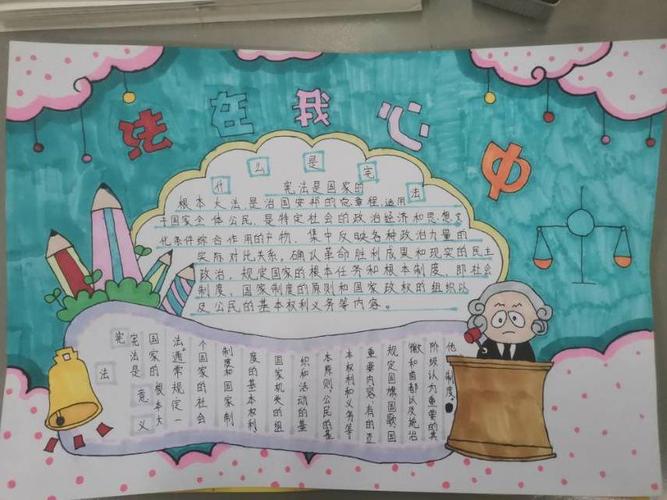 法在我心中
什么是宪法
宪法是国家的
根本大法,是治国安邦的总章程,适用
于国家全体公民,是特定社会的政治经济和思想文
化条件综合作用的产物,集中反映各种政治力量的
实际对比关系,确认革命胜利成果和现实的民主
政治,规定国家的根本任务和根本制度,即社会
制度、国家制度的原则和国家政权的组织以
及公民的基本权利义务等内容。
宪法意义
宪法是
国家的根本大
法,通常规定一
个国家的社会
制度和国家制
度的基本权利
国家机关的组
织和活动的基
本原则,公民的基
本权利和义务等
重要内容,有的还
规定国旗国歌国
徽和首都以及统治
阶级认为重要的其
他制度。